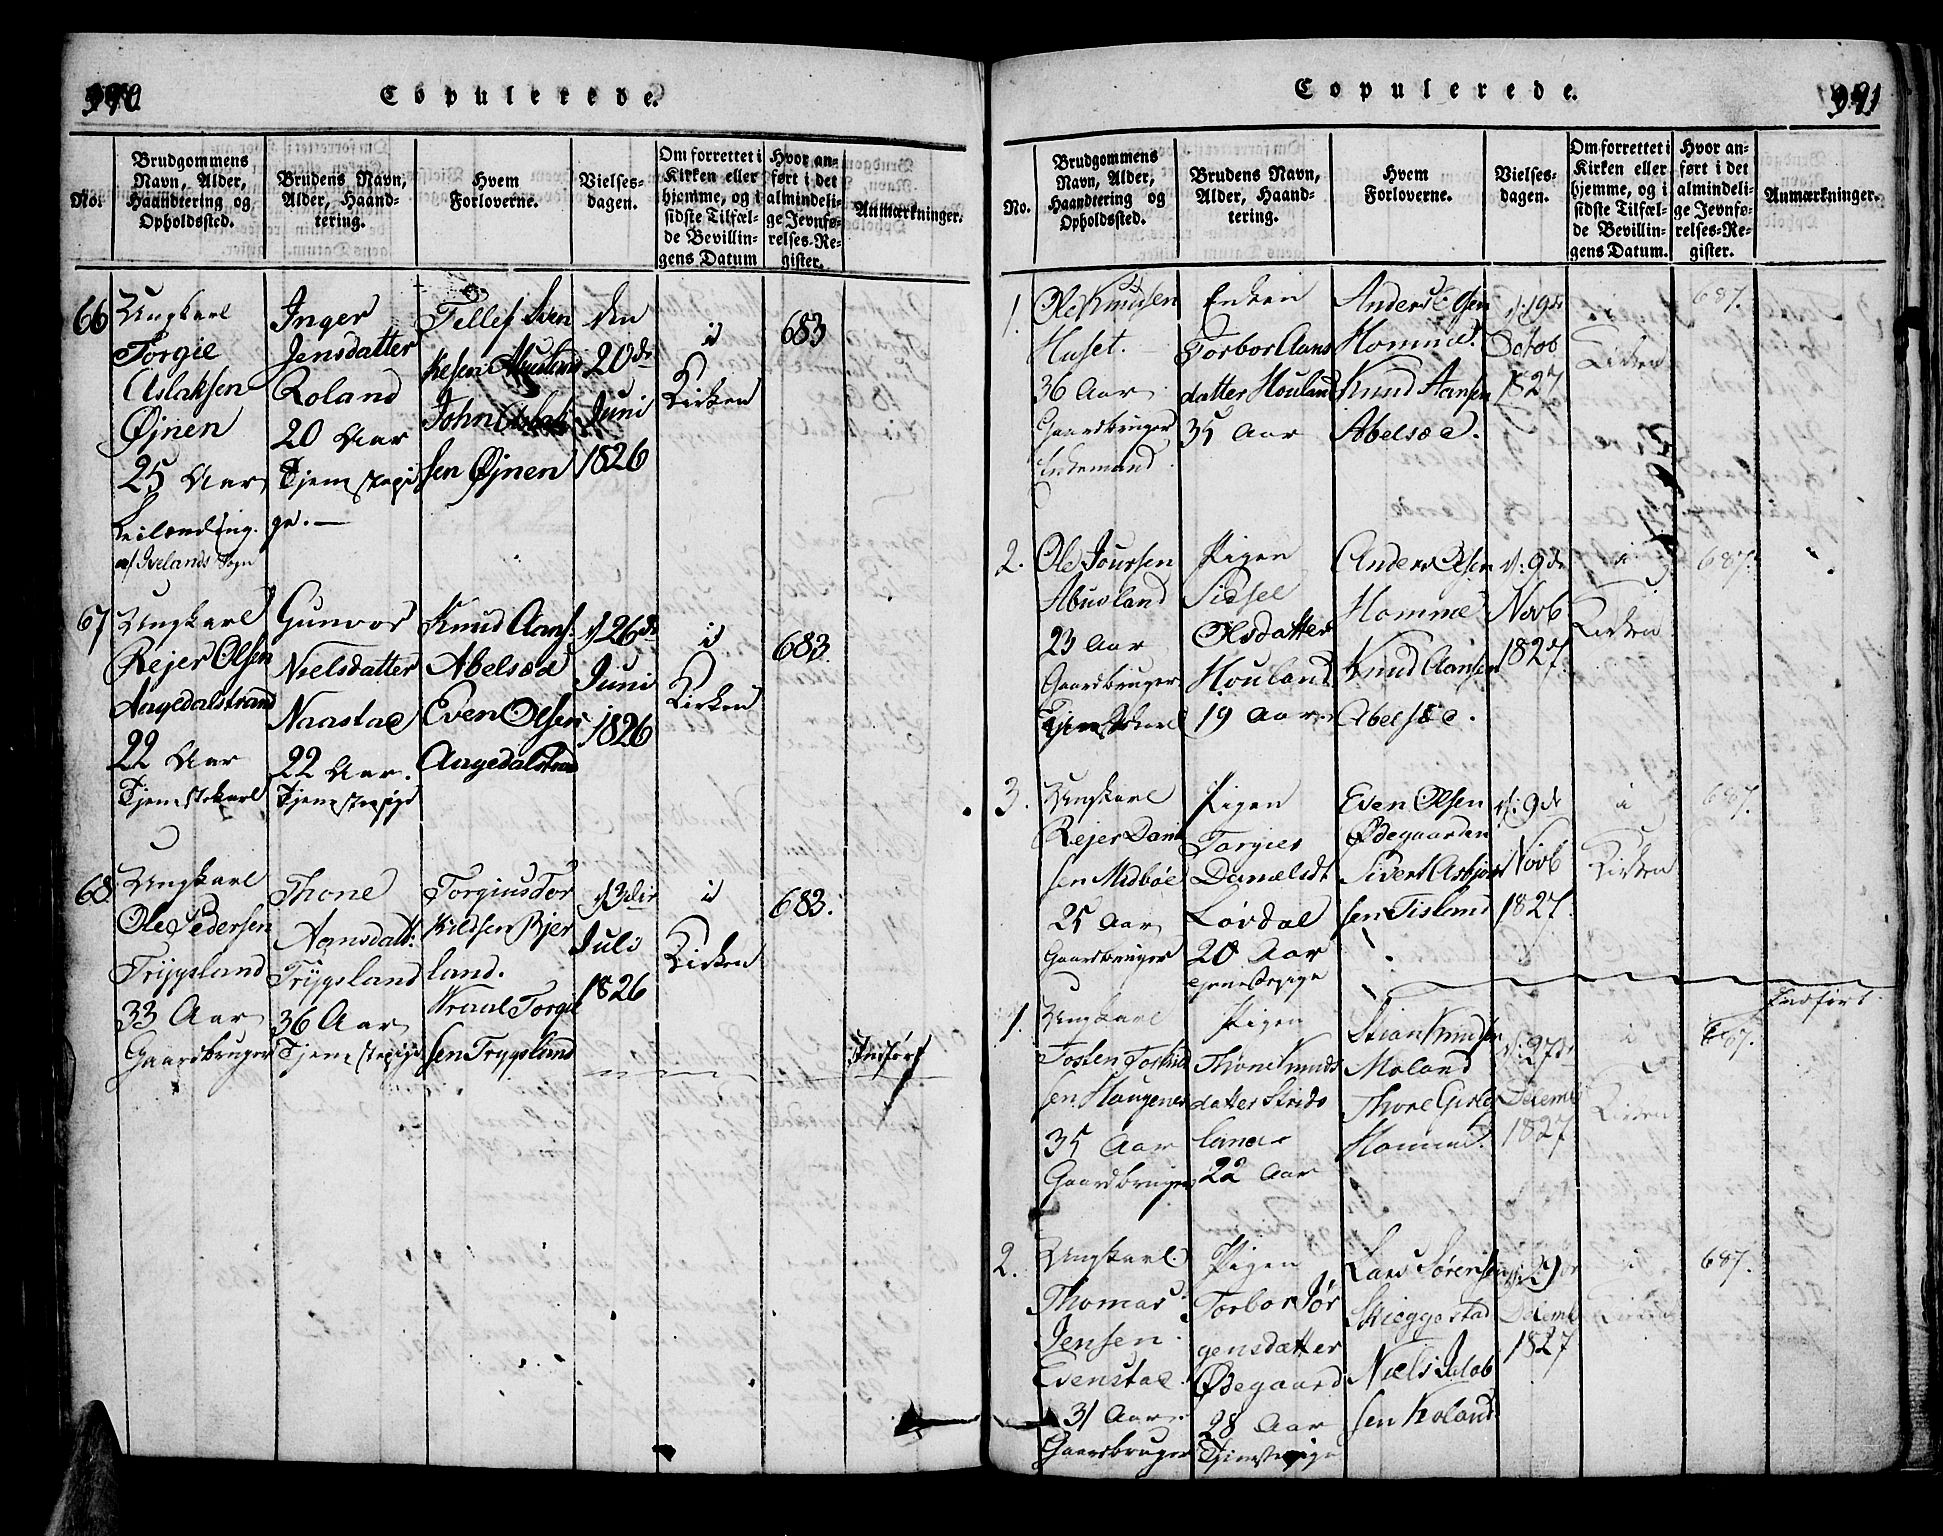 Copulerede.
No.
Brudgommens Navn, Alder, Haandtering og Opholdssted.
Brudens Navn, Alder, Haandtering.
Hvem Forloverne.
Vielsesdagen.
Om forrettet i Kirken eller hjemme, og i sidste Tilfælde Bevillingens Datum
Hvor anført i det almindelige Jevnførelses-Register.
Anmærkninger.
66
Ungkarl
Torgie
Aslaksen
Øjnen
25 Aar
Leilænding
af Ivelands Sogn
Inger
Jensdatter
Roland
20 Aar
Tjenestepi
ge.
Tellef Sven
kesen Abusland
John Aslak
sen Øjnen
den
20de
Juni
1826
i
Kirken
683
67
Ungkarl
Rejer Olsen
Aagedalstrand
22 Aar
Tjenestekarl
Gunvor
Nielsdatter
Naastad
22 Aar.
Tjenestepige
Knud Aans:
Abelsæe
Even Olsen
Aagedalstrand
d 26de
Juni
1826
i
Kirken
683.
68.
Ungkarl
Ole Pedersen
Trygsland
33 Aar
Gaardbruger
Thone
Aansdatt:
Trygsland
36 Aar
Tjenestepige
Torgius Tor
kildsen Bjer
land.
Torgi
sen Trygsland
Juli
1826
i
Kirken
683.
Indført
Copulerede.
391
No.
Brudgommens Navn, Alder, Haandtering og Opholdssted.
Brudens Navn, Alder, Haandtering.
Hvem Forloverne.
Vielsesdagen.
Om forrettet i Kirken eller hjemme, og i sidste Tilfælde Bevillingens Datum.
Hvor anført i det almindelige Jevnførelses-Register.
Anmærkninger.
1.
Ole Knudsen
Huset.
36 Aar
Gaardbruger
Enkemand
Enken
Torbor Aans
datter Houland
35 Aar
Anders Olsen
Homme.
Knud Aansen
Abelsæe.
Octob
1827
i
Kirken
687.
2.
Ole Joursen
Abusland
23 Aar
Gaardbruger
Tjenestekarl
Pigen
Sidsel
Olsdatter
Houland
19 Aar
Anders Olsen
Homme
Knud Aansen
Abelsæe.
d: 9de
Novb
1827.
i
Kirken
687.
3.
Ungkarl
Rejer Dani
sen Midbøe
25 Aar
Gaardbruger
Pigen
Torgier
Danielsdt
Løvdal
20 Aar
tjenestepige
Even Olsen
Ødegaarden
Sivert Asbjørn
sen Tisland
d: 9de
Novb
1827.
i
Kirken
687.
Indført.
1.
Ungkarl
Tosten Toskild
sen Haugenes
35 Aar
Gaardbruger
Pigen
Thone Knuds
datter Strids
land
22 Aar
Stian Knudsen
Moland
Thore
Homme.
d: 27de
Decemb
1827
i
Kirken
687.
2.
Ungkarl.
Thomas
Jensen
Evenstad.
31 Aar
Gaardbruger
Pigen
Torbor Jør
gensdatter
Ødegaard
28 Aar
Tjenestepige
Lars Sørensen
Skieggestad
Niels Jacob
sen Roland
Decemb
1827
i
Kirken
687.